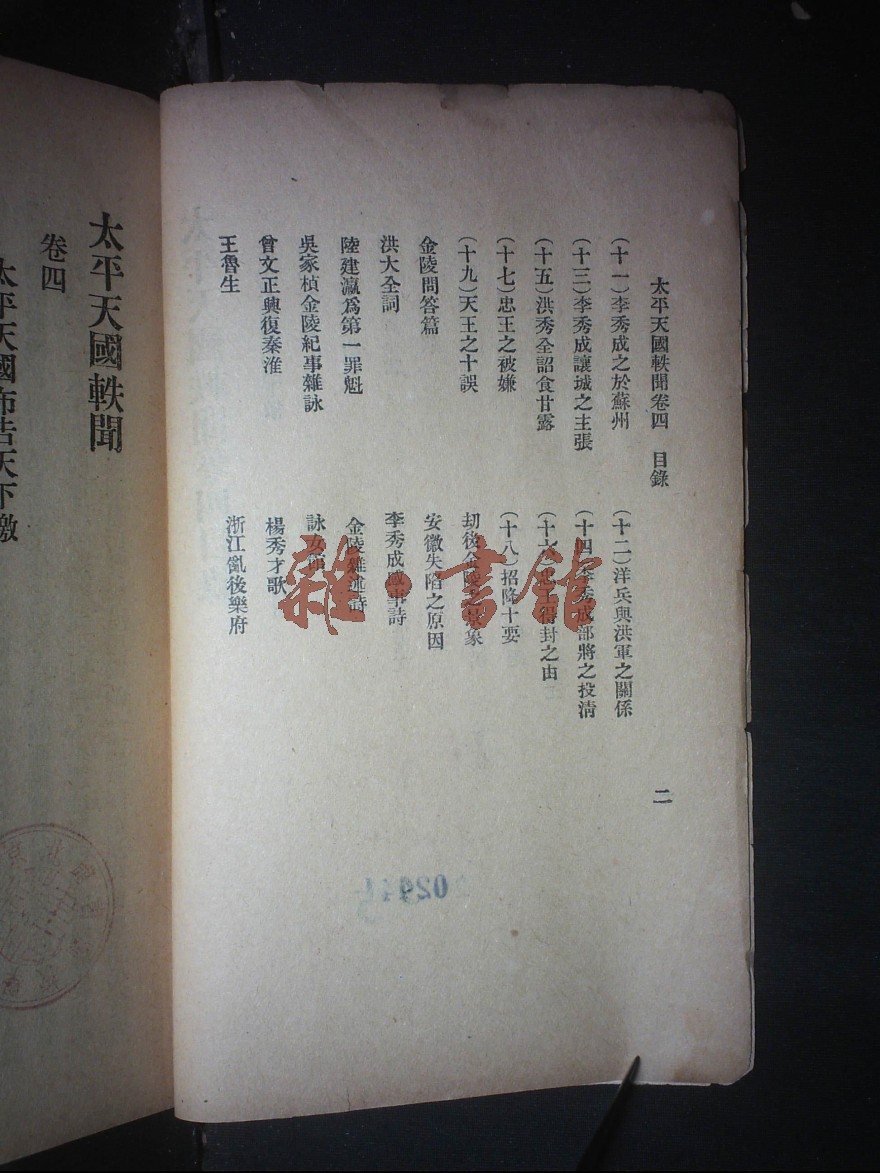 太平天國軼聞卷四　目錄
二
（十一）李秀成之於蘇州
（十二）洋兵與洪軍之關係
（十三）李秀成讓城之主張
（十四）李秀成部將之投清
（十五）洪秀全詔食甘露
（十六）忠王得封之由
（十七）忠王之被嫌
（十八）招降十要
（十九）天王之十誤
劫後金陵之景象
金陵問答篇
安徽失陷之原因
洪大全詞
李秀成感事詩
陸建瀛爲第一罪魁
金陵雜述詩
吳家楨金陵紀事雜詠
詠女館
曾文正興復秦淮
楊秀才歌
王魯生
浙江亂後樂府
太平天國軼聞
卷四
太平天國布告天下檄
雜·書館